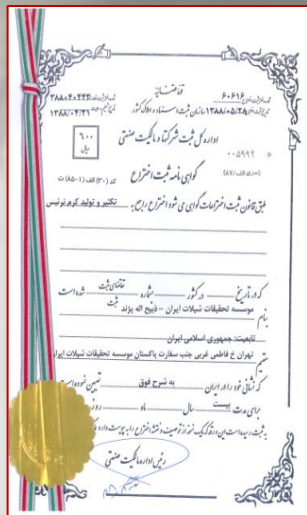 قوه قضائیه
شماره ثبت اختراع: ۶۰۶۱۶
تاریخ ثبت اختراع: ۱۳۸۸/۰۵/۲۸
سازمان ثبت اسناد و املاک کشور
۱۳۸۸/۰۴/۳۱
اداره کل ثبت شرکتها و مالکیت صنعتی
۶۰۰
ریال
۰۰۵۹۹۲
(سری الف/۸۷)
گواهی نامه ثبت اختراع
کد (۳۰) الف (۴-۸۵) ت
طبق قانون ثبت اختراعات گواهی می شود اختراع راجع به تکثیر و تولید کرم نرئیس
که در تاریخ در کشور بشماره تقاضای ثبت شده است
ثبت
بنام موسسه تحقیقات شیلات ایران - ذبیح اله پژند
تابعیت: جمهوری اسلامی ایران
مقیم تهران خ فاطمی غربی جنب سفارت پاکستان موسسه تحقیقات شیلات ایران
که نشانی خود را در ایران به شرح فوق تعیین نموده است
برای مدت بیست سال ماه روز
رئیس اداره مالکیت صنعتی